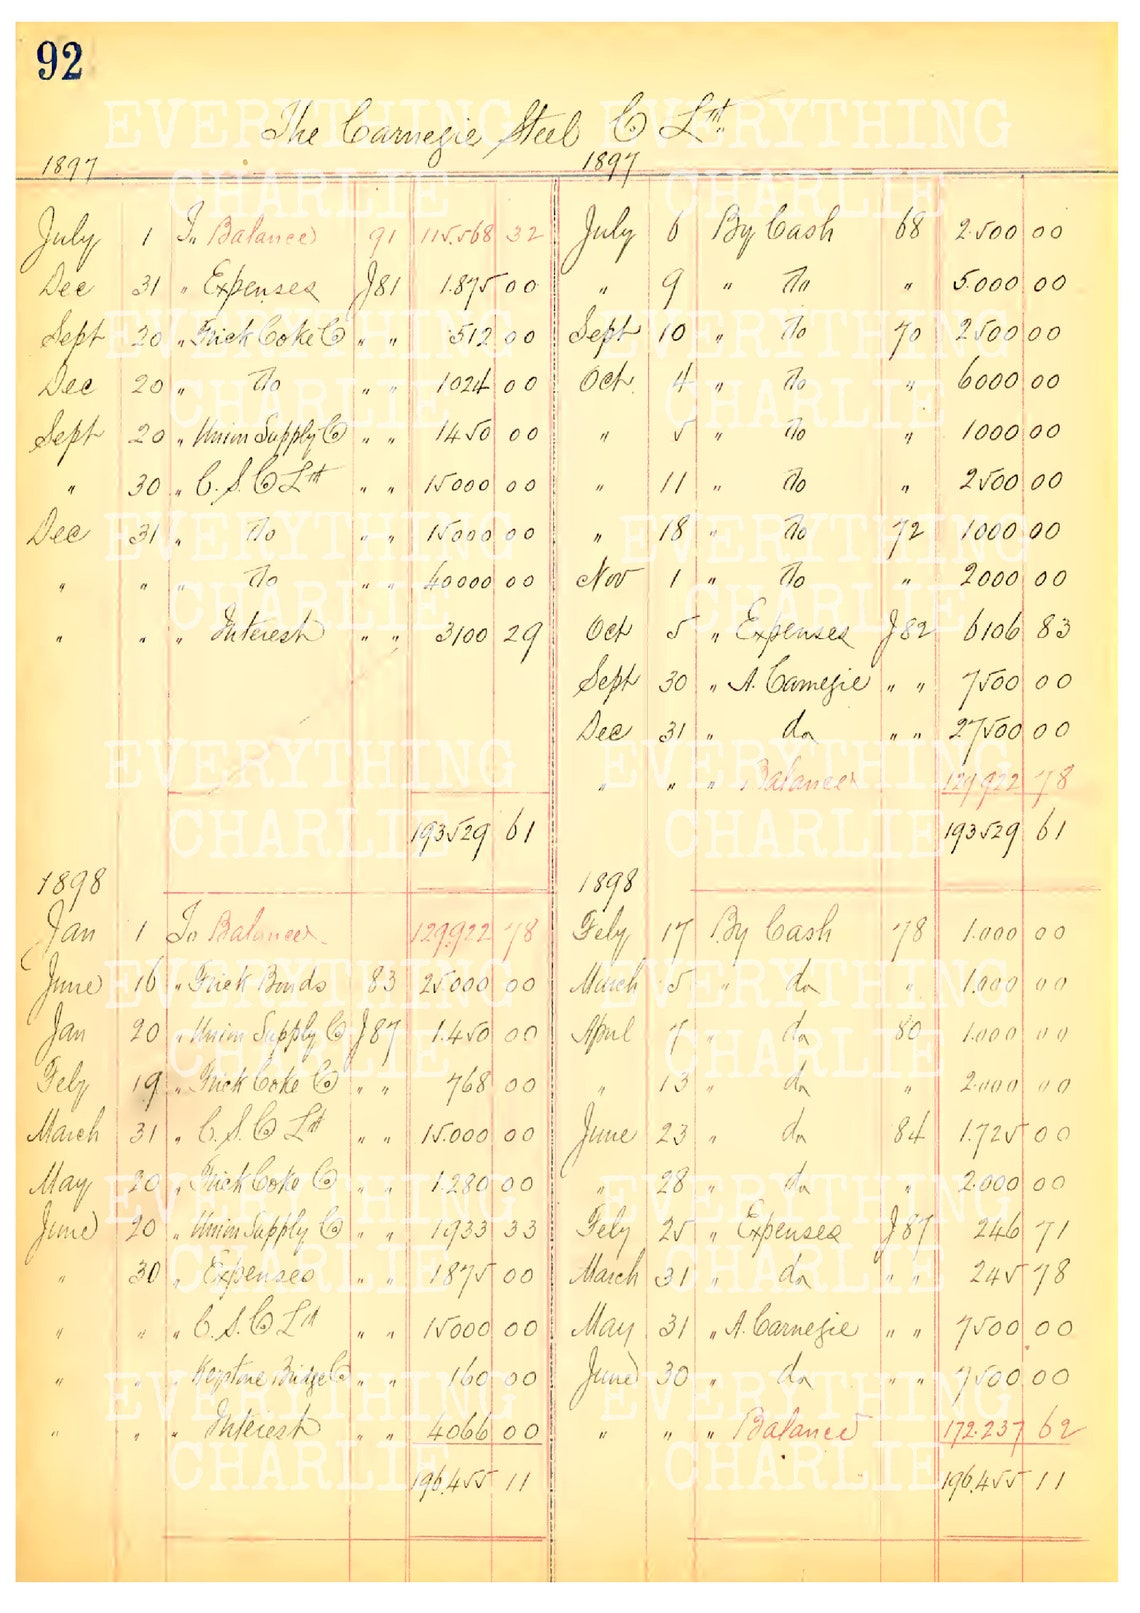 92
The Carnegie Steel Co Ltd.
1897 1897
July 1 To Balance 91 115.568 32 July 6 By Cash 68 2.500 00
Dec 31 " Expenses J81 1.875 00 " 9 " Do " 5.000 00
Sept 20 " Frick Coke Co " " 512 00 Sept 10 " Do 70 2500 00
Dec 20 " Do " " 1024 00 Oct. 4 " Do " 6000 00
Sept 20 " Union Supply Co " " 1450 00 " 5 " Do " 1000 00
" 30 " C. S. Co Ltd " " 15000 00 " 11 " Do " 2500 00
Dec 31 " Do " " 15000 00 " 18 " Do 72 1000 00
" " " Do " " 40000 00 Nov 1 " Do " 2000 00
" " " Interest " " 3100 29 Oct 5 " Expenses J82 6106 83
Sept 30 " A. Carnegie " " 7500 00
Dec 31 " do " " 27500 00
" " " Balance 129.922 78
193529 61 193529 61
1898 1898
Jan 1 To Balance 129.922 78 Feby 17 By Cash 78 1.000 00
June 16 " Frick Bonds 83 25.000 00 March 5 " do " 1.000 00
Jan 20 " Union Supply Co J87 1.450 00 April 7 " do 80 1.000 00
Feby 19 " Frick Coke Co " " 768 00 " 13 " do " 2.000 00
March 31 " C. S. Co Ltd " " 15.000 00 June 23 " do 84 1.725 00
May 20 " Frick Coke Co " " 1.280 00 " 28 " do " 2.000 00
June 20 " Union Supply Co " " 1933 33 Feby 25 " Expenses J87 246 71
" 30 " Expenses " " 1875 00 March 31 " do " " 245 78
" " " C. S. Co Ltd " " 15000 00 May 31 " A. Carnegie " " 7500 00
" " " Keystone Bridge Co " " 160 00 June 30 " do " " 7500 00
" " " Interest " " 4066 00 " " " Balance 172.237 62
196.455 11 196.455 11
EVERYTHING CHARLIE